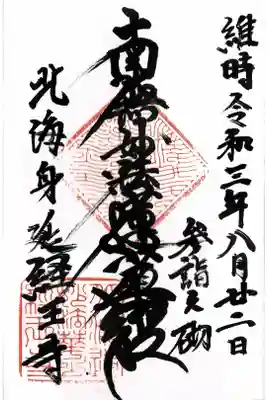 維時令和三年八月廿二日
参詣之砌
南無妙法蓮華経
北海身延
王寺